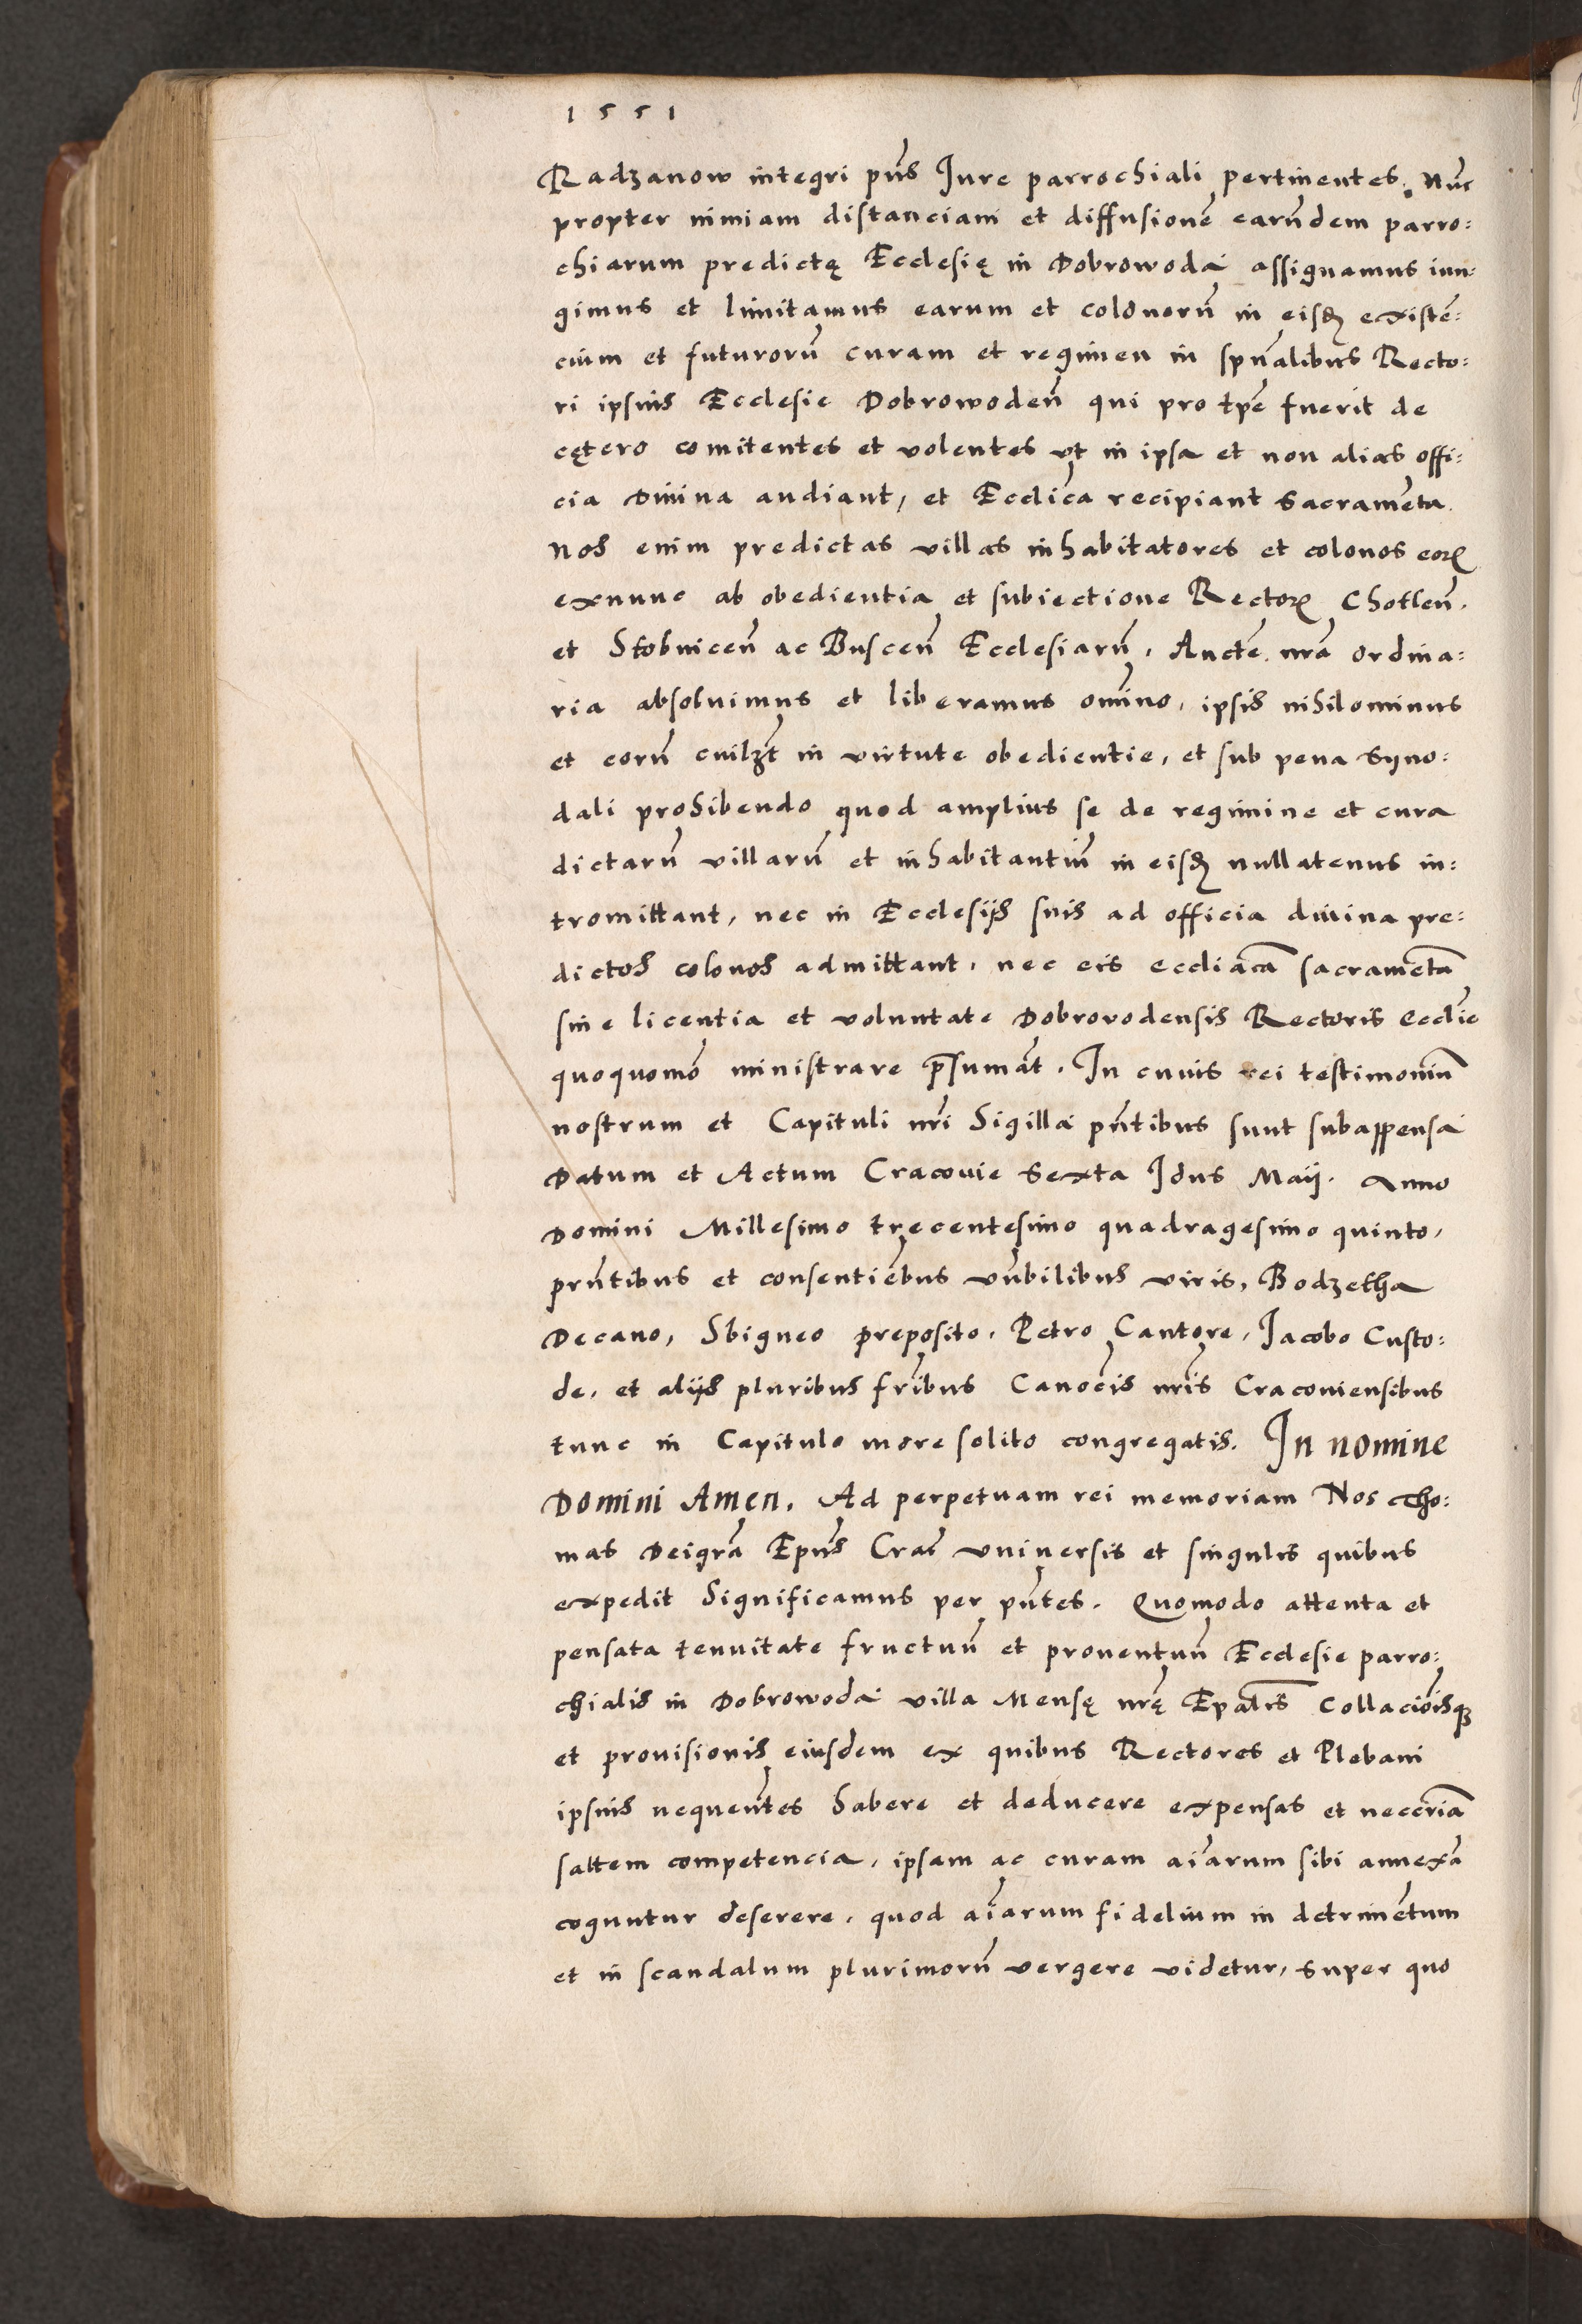 1551
Radzanow integri pñs Jure parrochiali pertinentes. Nũc
propter nimiam distanciam et diffusionẽ earũdem parro:
chiarum predictę Ecclesię in Dobrowoda assignamus iun:
gimus et limitamus earum et colonorũ in eisdẽ existẽ:
cium et futurorũ curam et regimen in spũalibus Recto:
ri ipsius Ecclesie Dobrowodeñ qui pro tp̃e fuerit de
cętero comitentes et volentes vt in ipsa et non alias offi:
cia Diuina audiant, et Ecclĩca recipiant sacramẽta.
Nos enim predictas villas inhabitatores et colonos eorꝝ
exnunc ab obedientia et subiectione Rectorꝝ Chotleñ.
et Stobniceñ ac Busceñ Ecclesiarũ, Auctẽ. nr̃a ordina:
ria absoluimus et liberamus omĩno, ipsis nihilominus
et eorũ cuilꝫt in virtute obedientie, et sub pena Syno:
dali prohibendo quod amplius se de regimine et cura
dictarũ villarũ et inhabitantiũ in eisdẽ nullatenus in:
tromittant, nec in Ecclesijs suis ad officia diuina pre:
dictos colonos admittant, nec eis eccliãca sacramẽta
sine licentia et voluntate Dobrovodensis Rectoris ecclĩe
quoquomõ ministrare p̃sumãt. In cuius rei testimoniũ
nostrum et Capituli nr̃i Sigilla pñtibus sunt subappensa
Datum et Actum Cracouie Sexta Idus Maij. Anno
Domini Millesimo trecentesimo quadragesimo quinto,
prñtibus et consentiẽbus vñbilibus viris, Bodzetha
Decano, Sbigneo preposito, Petro Cantore, Jacobo Custo:
de, et alijs pluribus fr̃ibus Canoc̃is nr̃is Cracouiensibus
tunc in Capitulo more solito congregatis. In nomine
Domini Amen. Ad perpetuam rei memoriam Nos Tho:
mas Deigrã Ep̃us Crac̃ vniuersis et singulis quibus
expedit Significamus per pñtes. Quomodo attenta et
pensata tenuitate fructuũ et prouentuũ Ecclesie parro:
chialis in Dobrowoda villa Mensę nr̃ę Ep̃alis Collaciõisqꝫ
et prouisionis eiusdem ex quibus Rectores et Plebani
ipsius nequeũtes habere et deducere expensas et neccr̃ia
saltem competencia, ipsam ac curam aĩarum sibi annexã
coguntur deserere, quod aĩarum fidelium in detrimẽtum
et in scandalum plurimorũ vergere videtur, super quo